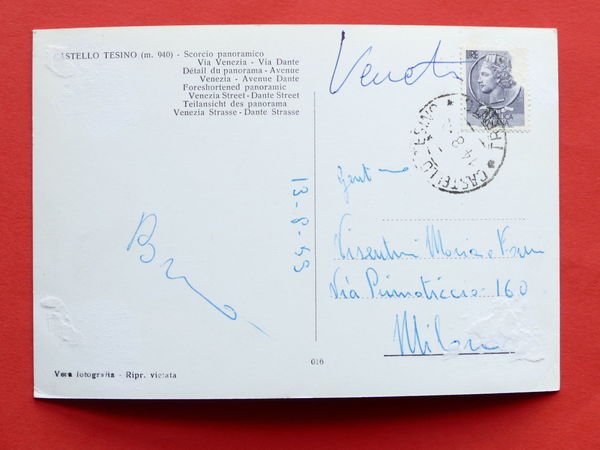 CASTELLO TESINO (m. 940) - Scorcio panoramico
Via Venezia - Via Dante
Détail du panorama - Avenue
Venezia - Avenue Dante
Foreshortened panoramic
Venezia Street - Dante Street
Teilansicht des panorama
Venezia Strasse - Dante Strasse
CASTELLO TESINO
14-8
13-8-55
Gent
Visentini Maria e Fam
Via Primaticcio 160
Milano
616
Vera fotografia - Ripr. vietata